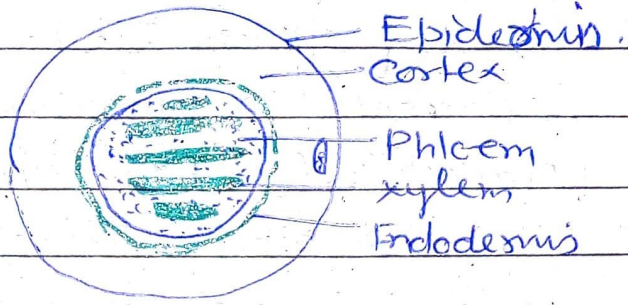 Epidermis.
Cortex
Phloem
xylem
Endodermis